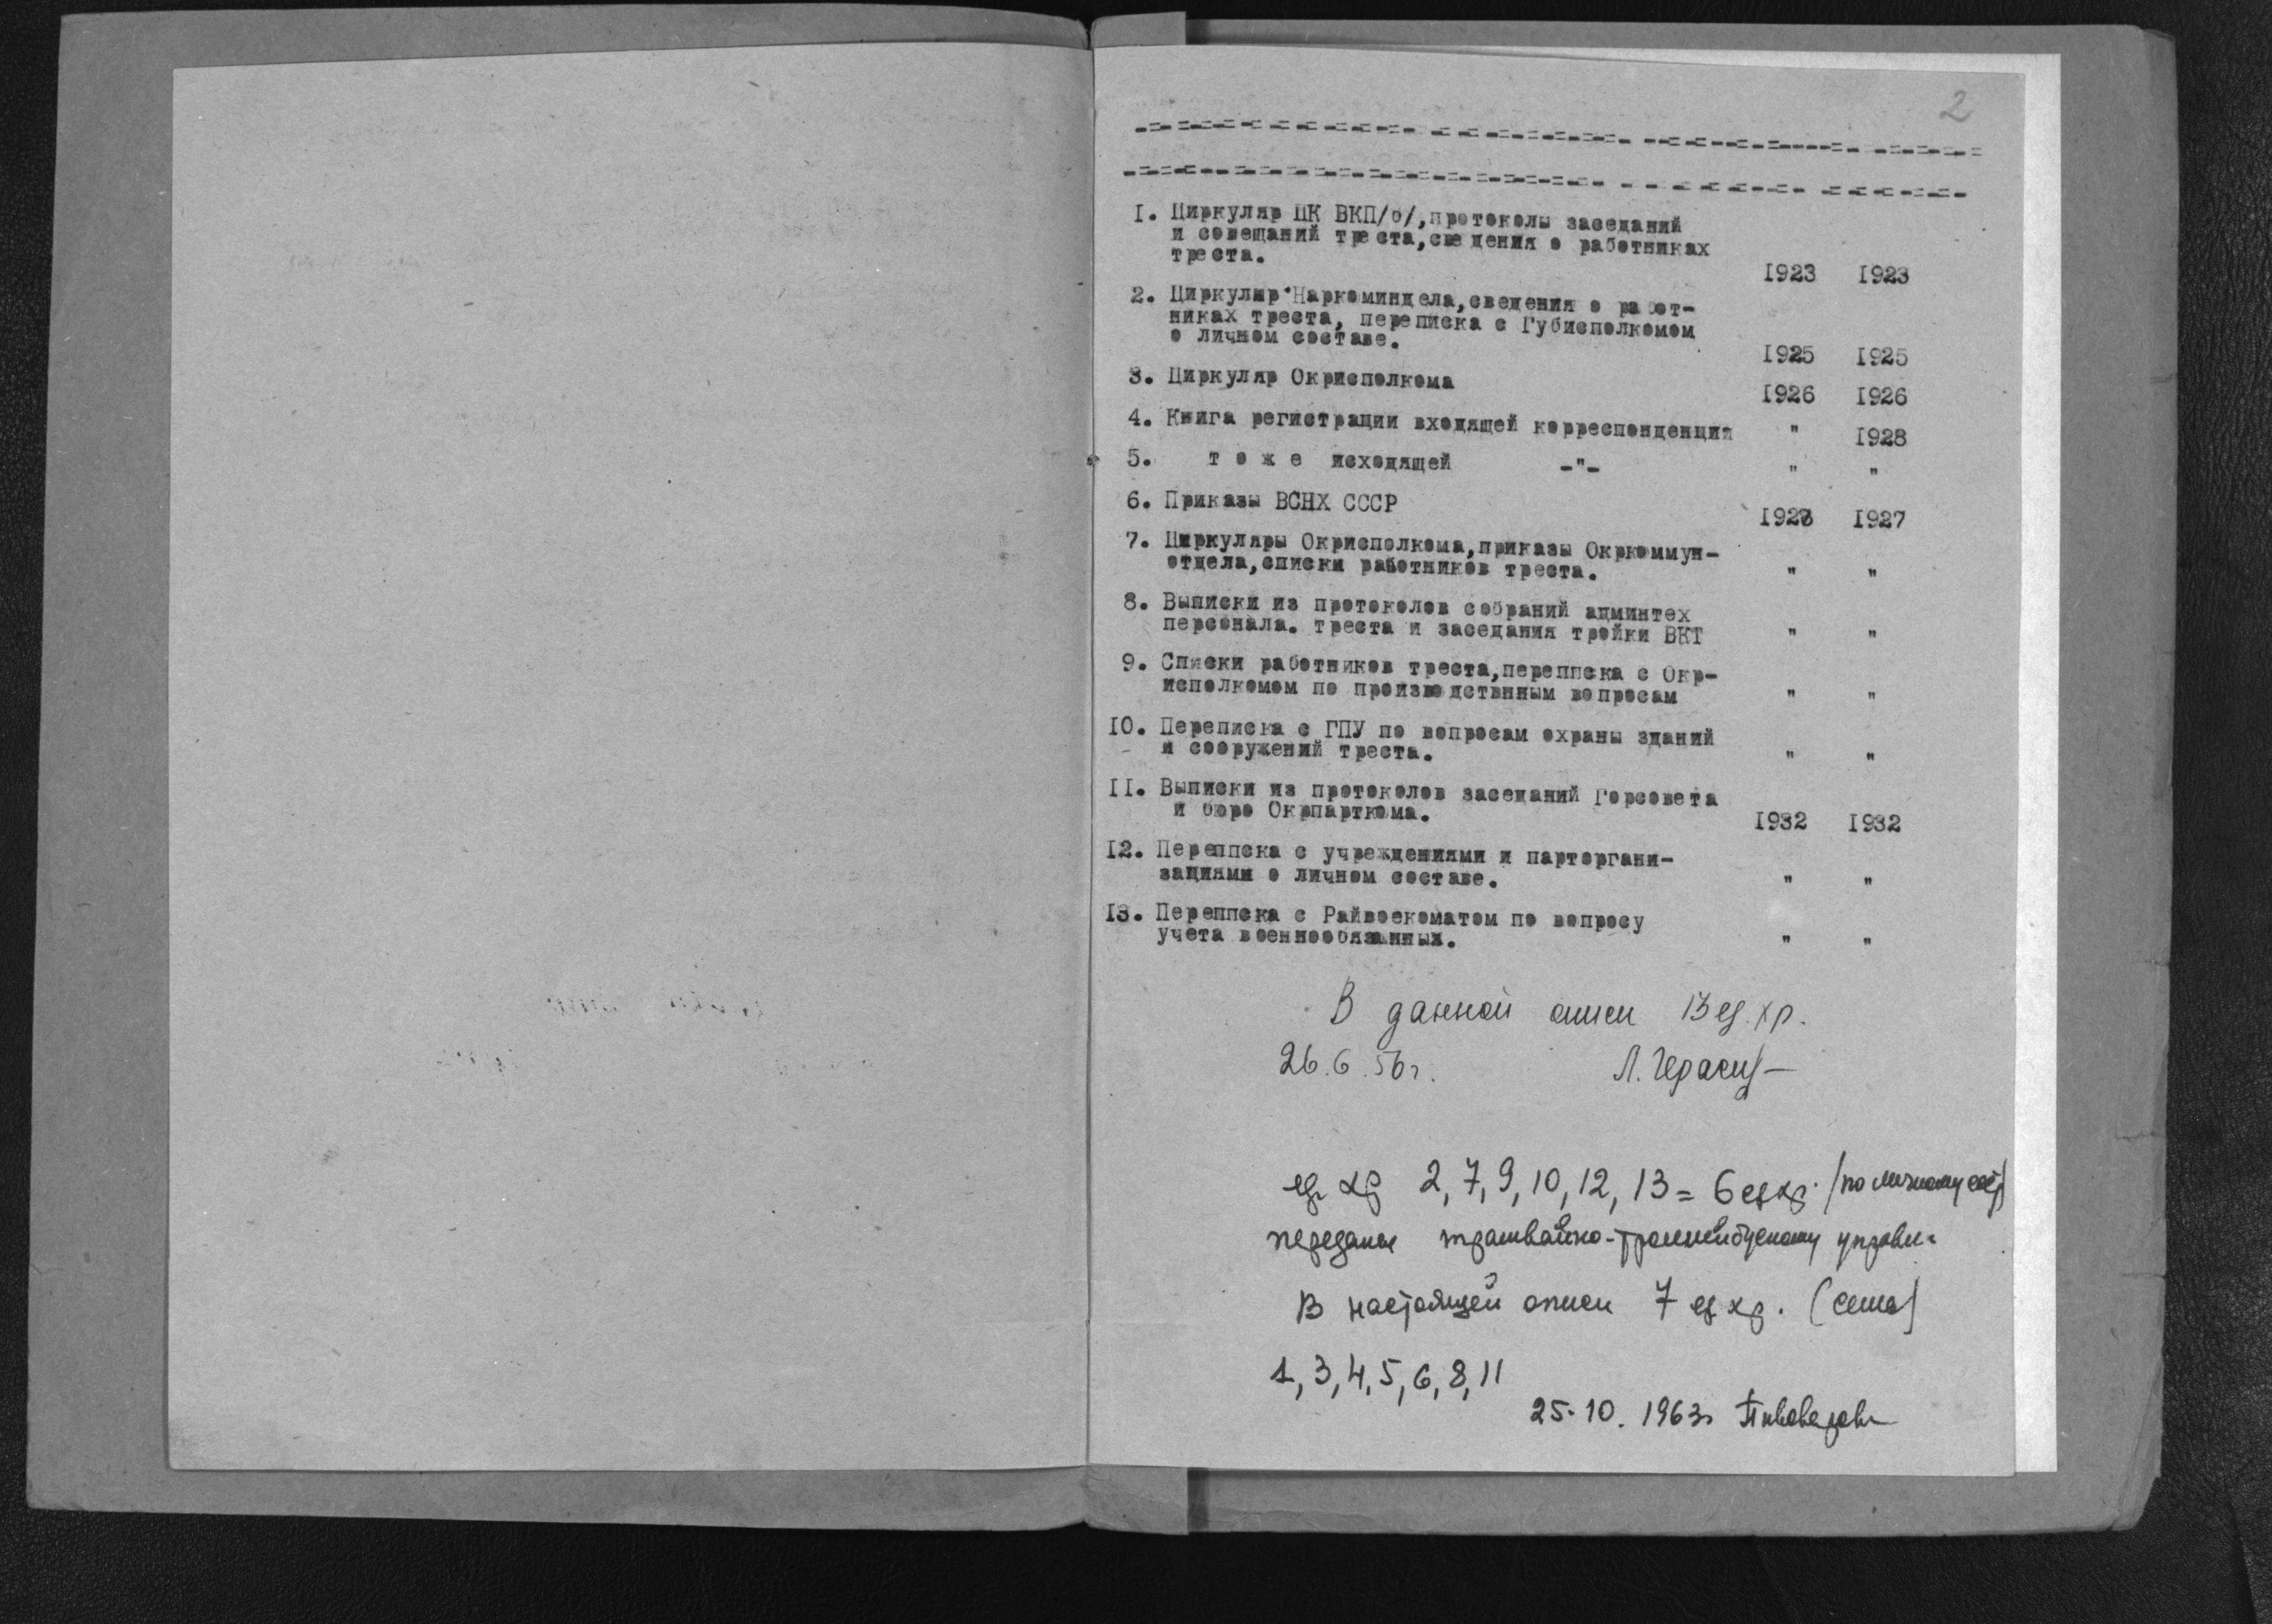 2
1. Циркуляр ЦК ВКП/б/,протоколы заседаний
и совещаний треста,сведения о работниках
треста. 1923 1923
2. Циркуляр Наркоминдела,сведения о работ-
никах треста, переписка с Губисполкомом
о личном составе. 1925 1925
3. Циркуляр Окрисполкома 1926 1926
4. Книга регистрации входящей корреспонденции " 1928
5. т о ж е исходящей -"- " "
6. Приказы ВСНХ СССР 1927 1927
7. Циркуляры Окрисполкома,приказы Окркоммун-
отдела,списки работников треста. " "
8. Выписки из протоколов собраний админтех
персонала. треста и заседания тройки ВКТ " "
9. Списки работников треста,переписка с Окр-
исполкомом по производствнным вопросам " "
10. Переписка с ГПУ по вопросам охраны зданий
и сооружений треста. " "
11. Выписки из протоколов заседаний Горсовета
и бюро Окрпарткома. 1932 1932
12. Переписка с учреждениями и парторгани-
зациями о личном составе. " "
13. Переписка с Райвоекоматом по вопросу
учета военнообязанных. " "
В данной описи 13 ед. хр.
26.6.56г. Л. Герасим
ед хр 2, 7, 9, 10, 12, 13 = 6 ед хр. /по личному сост/
переданы трамвайно-троллейбусному управл.
В настоящей описи 7 ед хр. (семь)
1, 3, 4, 5, 6, 8, 11
25.10. 1963г Пивоварова